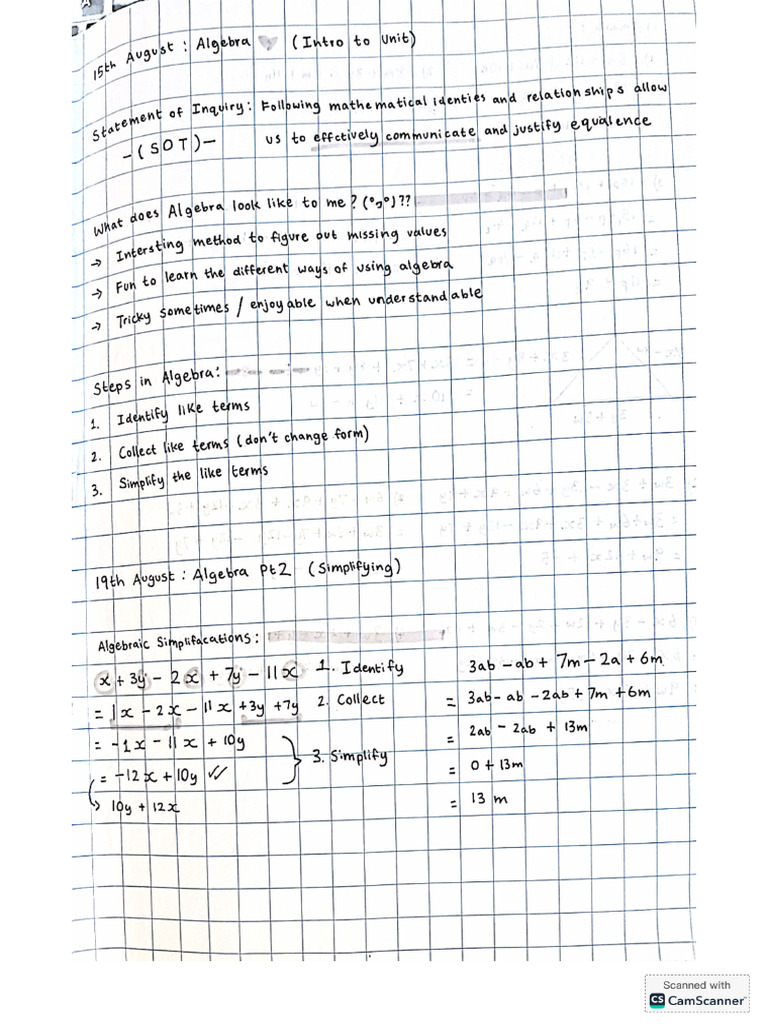 15th August : Algebra (Intro to Unit)
Statement of Inquiry: Following mathematical identies and relationships allow
-(SOT)- us to effctively communicate and justify equalence
What does Algebra look like to me? (°□°)??
→ Intersting method to figure out missing values
→ Fun to learn the different ways of using algebra
→ Tricky sometimes / enjoyable when understandable
Steps in Algebra:
1. Identify like terms
2. Collect like terms (don't change form)
3. Simplify the like terms
19th August : Algebra Pt2 (Simplifying)
Algebraic Simplifacations:
x + 3y - 2x + 7y - 11x 1. Identify
= 1x - 2x - 11x + 3y + 7y 2. Collect
= -1x - 11x + 10y
= -12x + 10y ✓✓ 3. Simplify
↳ 10y + 12x
3ab - ab + 7m - 2a + 6m
= 3ab - ab - 2ab + 7m + 6m
= 2ab - 2ab + 13m
= 0 + 13m
= 13 m
Scanned with
CS CamScanner